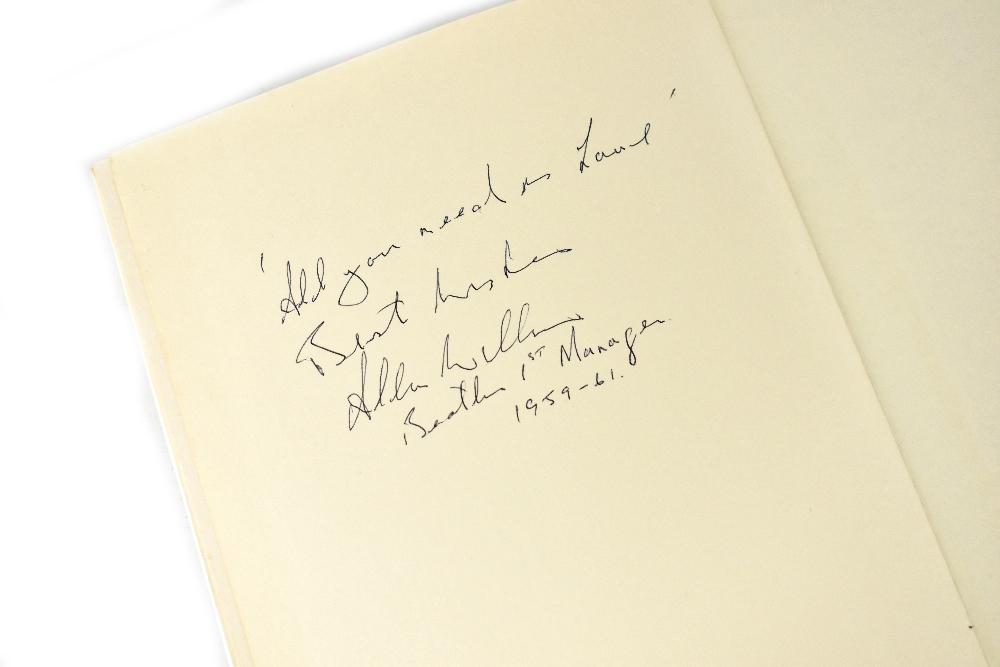 'All you need is Love'
Best Wishes
Allan Williams
Beatles 1ST Manager.
1959-61.